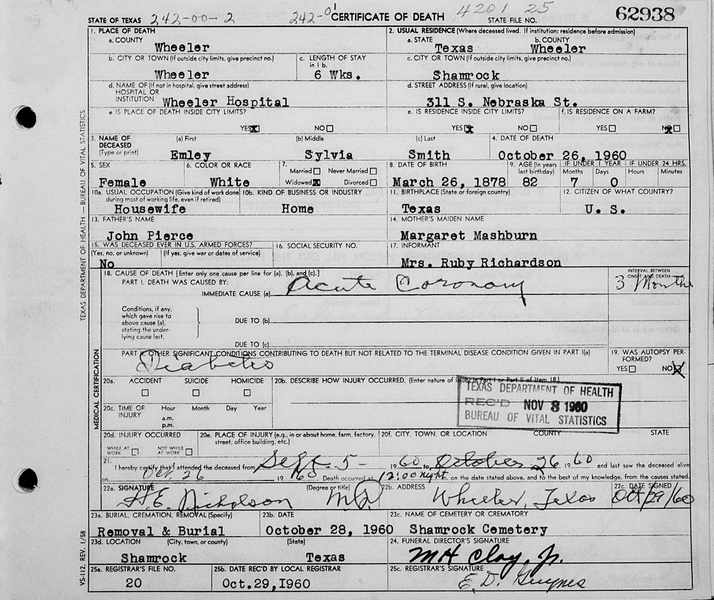 STATE OF TEXAS 242-00-2 242-01 CERTIFICATE OF DEATH 4201 25 STATE FILE NO. 62938
1. PLACE OF DEATH
a. COUNTY Wheeler
2. USUAL RESIDENCE (Where deceased lived. If institution: residence before admission)
a. STATE Texas b. COUNTY Wheeler
b. CITY OR TOWN (If outside city limits, give precinct no.) Wheeler
c. LENGTH OF STAY in 1 b. 6 Wks.
c. CITY OR TOWN (If outside city limits, give precinct no.) Shamrock
d. NAME OF (If not in hospital, give street address) HOSPITAL OR INSTITUTION Wheeler Hospital
d. STREET ADDRESS (If rural, give location) 311 S. Nebraska St.
e. IS PLACE OF DEATH INSIDE CITY LIMITS? YES X NO
e. IS RESIDENCE INSIDE CITY LIMITS? YES X NO
f. IS RESIDENCE ON A FARM? YES NO X
3. NAME OF DECEASED (Type or print) (a) First Emley (b) Middle Sylvia (c) Last Smith
4. DATE OF DEATH October 26, 1960
5. SEX Female
6. COLOR OR RACE White
7. Married Never Married Widowed X Divorced
8. DATE OF BIRTH March 26, 1878
9. AGE (In years last birthday) 82
IF UNDER 1 YEAR Months 7 Days 0
IF UNDER 24 HRS. Hours Minutes
10a. USUAL OCCUPATION (Give kind of work done during most of working life, even if retired) Housewife
10b. KIND OF BUSINESS OR INDUSTRY Home
11. BIRTHPLACE (State or foreign country) Texas
12. CITIZEN OF WHAT COUNTRY? U. S.
13. FATHER'S NAME John Pierce
14. MOTHER'S MAIDEN NAME Margaret Mashburn
15. WAS DECEASED EVER IN U.S. ARMED FORCES? (Yes, no, or unknown) (If yes, give war or dates of service) No
16. SOCIAL SECURITY NO.
17. INFORMANT Mrs. Ruby Richardson
18. CAUSE OF DEATH [Enter only one cause per line for (a), (b), and (c).]
PART I. DEATH WAS CAUSED BY:
IMMEDIATE CAUSE (a) Acute Coronary
INTERVAL BETWEEN ONSET AND DEATH 3 Months
Conditions, if any, which gave rise to above cause (a), stating the underlying cause last.
DUE TO (b)
DUE TO (c)
PART II. OTHER SIGNIFICANT CONDITIONS CONTRIBUTING TO DEATH BUT NOT RELATED TO THE TERMINAL DISEASE CONDITION GIVEN IN PART I(a)
Diabetes
19. WAS AUTOPSY PERFORMED? YES NO X
20a. ACCIDENT SUICIDE HOMICIDE
20b. DESCRIBE HOW INJURY OCCURRED. (Enter nature of injury in Part I or Part II of item 18.)
TEXAS DEPARTMENT OF HEALTH
REC'D NOV 8 1960
BUREAU OF VITAL STATISTICS
20c. TIME OF INJURY Hour a.m. p.m. Month Day Year
20d. INJURY OCCURRED WHILE AT WORK NOT WHILE AT WORK
20e. PLACE OF INJURY (e.g., in or about home, farm, factory, street, office building, etc.)
20f. CITY, TOWN, OR LOCATION COUNTY STATE
21. I hereby certify that I attended the deceased from Sept. 5- 1960 to October 26 1960 and last saw the deceased alive
on Oct. 26 1960 Death occurred at 12:00 night on the date stated above, and to the best of my knowledge, from the causes stated.
22a. SIGNATURE H.E. Nicholson (Degree or title) MD
22b. ADDRESS Wheeler, Texas
22c. DATE SIGNED Oct/29/60
23a. BURIAL, CREMATION, REMOVAL (Specify) Removal & Burial
23b. DATE October 28, 1960
23c. NAME OF CEMETERY OR CREMATORY Shamrock Cemetery
23d. LOCATION (City, town, or county) (State) Shamrock Texas
24. FUNERAL DIRECTOR'S SIGNATURE MH Clay, Jr.
25a. REGISTRAR'S FILE NO. 20
25b. DATE REC'D BY LOCAL REGISTRAR Oct.29, 1960
25c. REGISTRAR'S SIGNATURE E. D. Guynes
TEXAS DEPARTMENT OF HEALTH — BUREAU OF VITAL STATISTICS
MEDICAL CERTIFICATION
VS-112. REV. 1/58